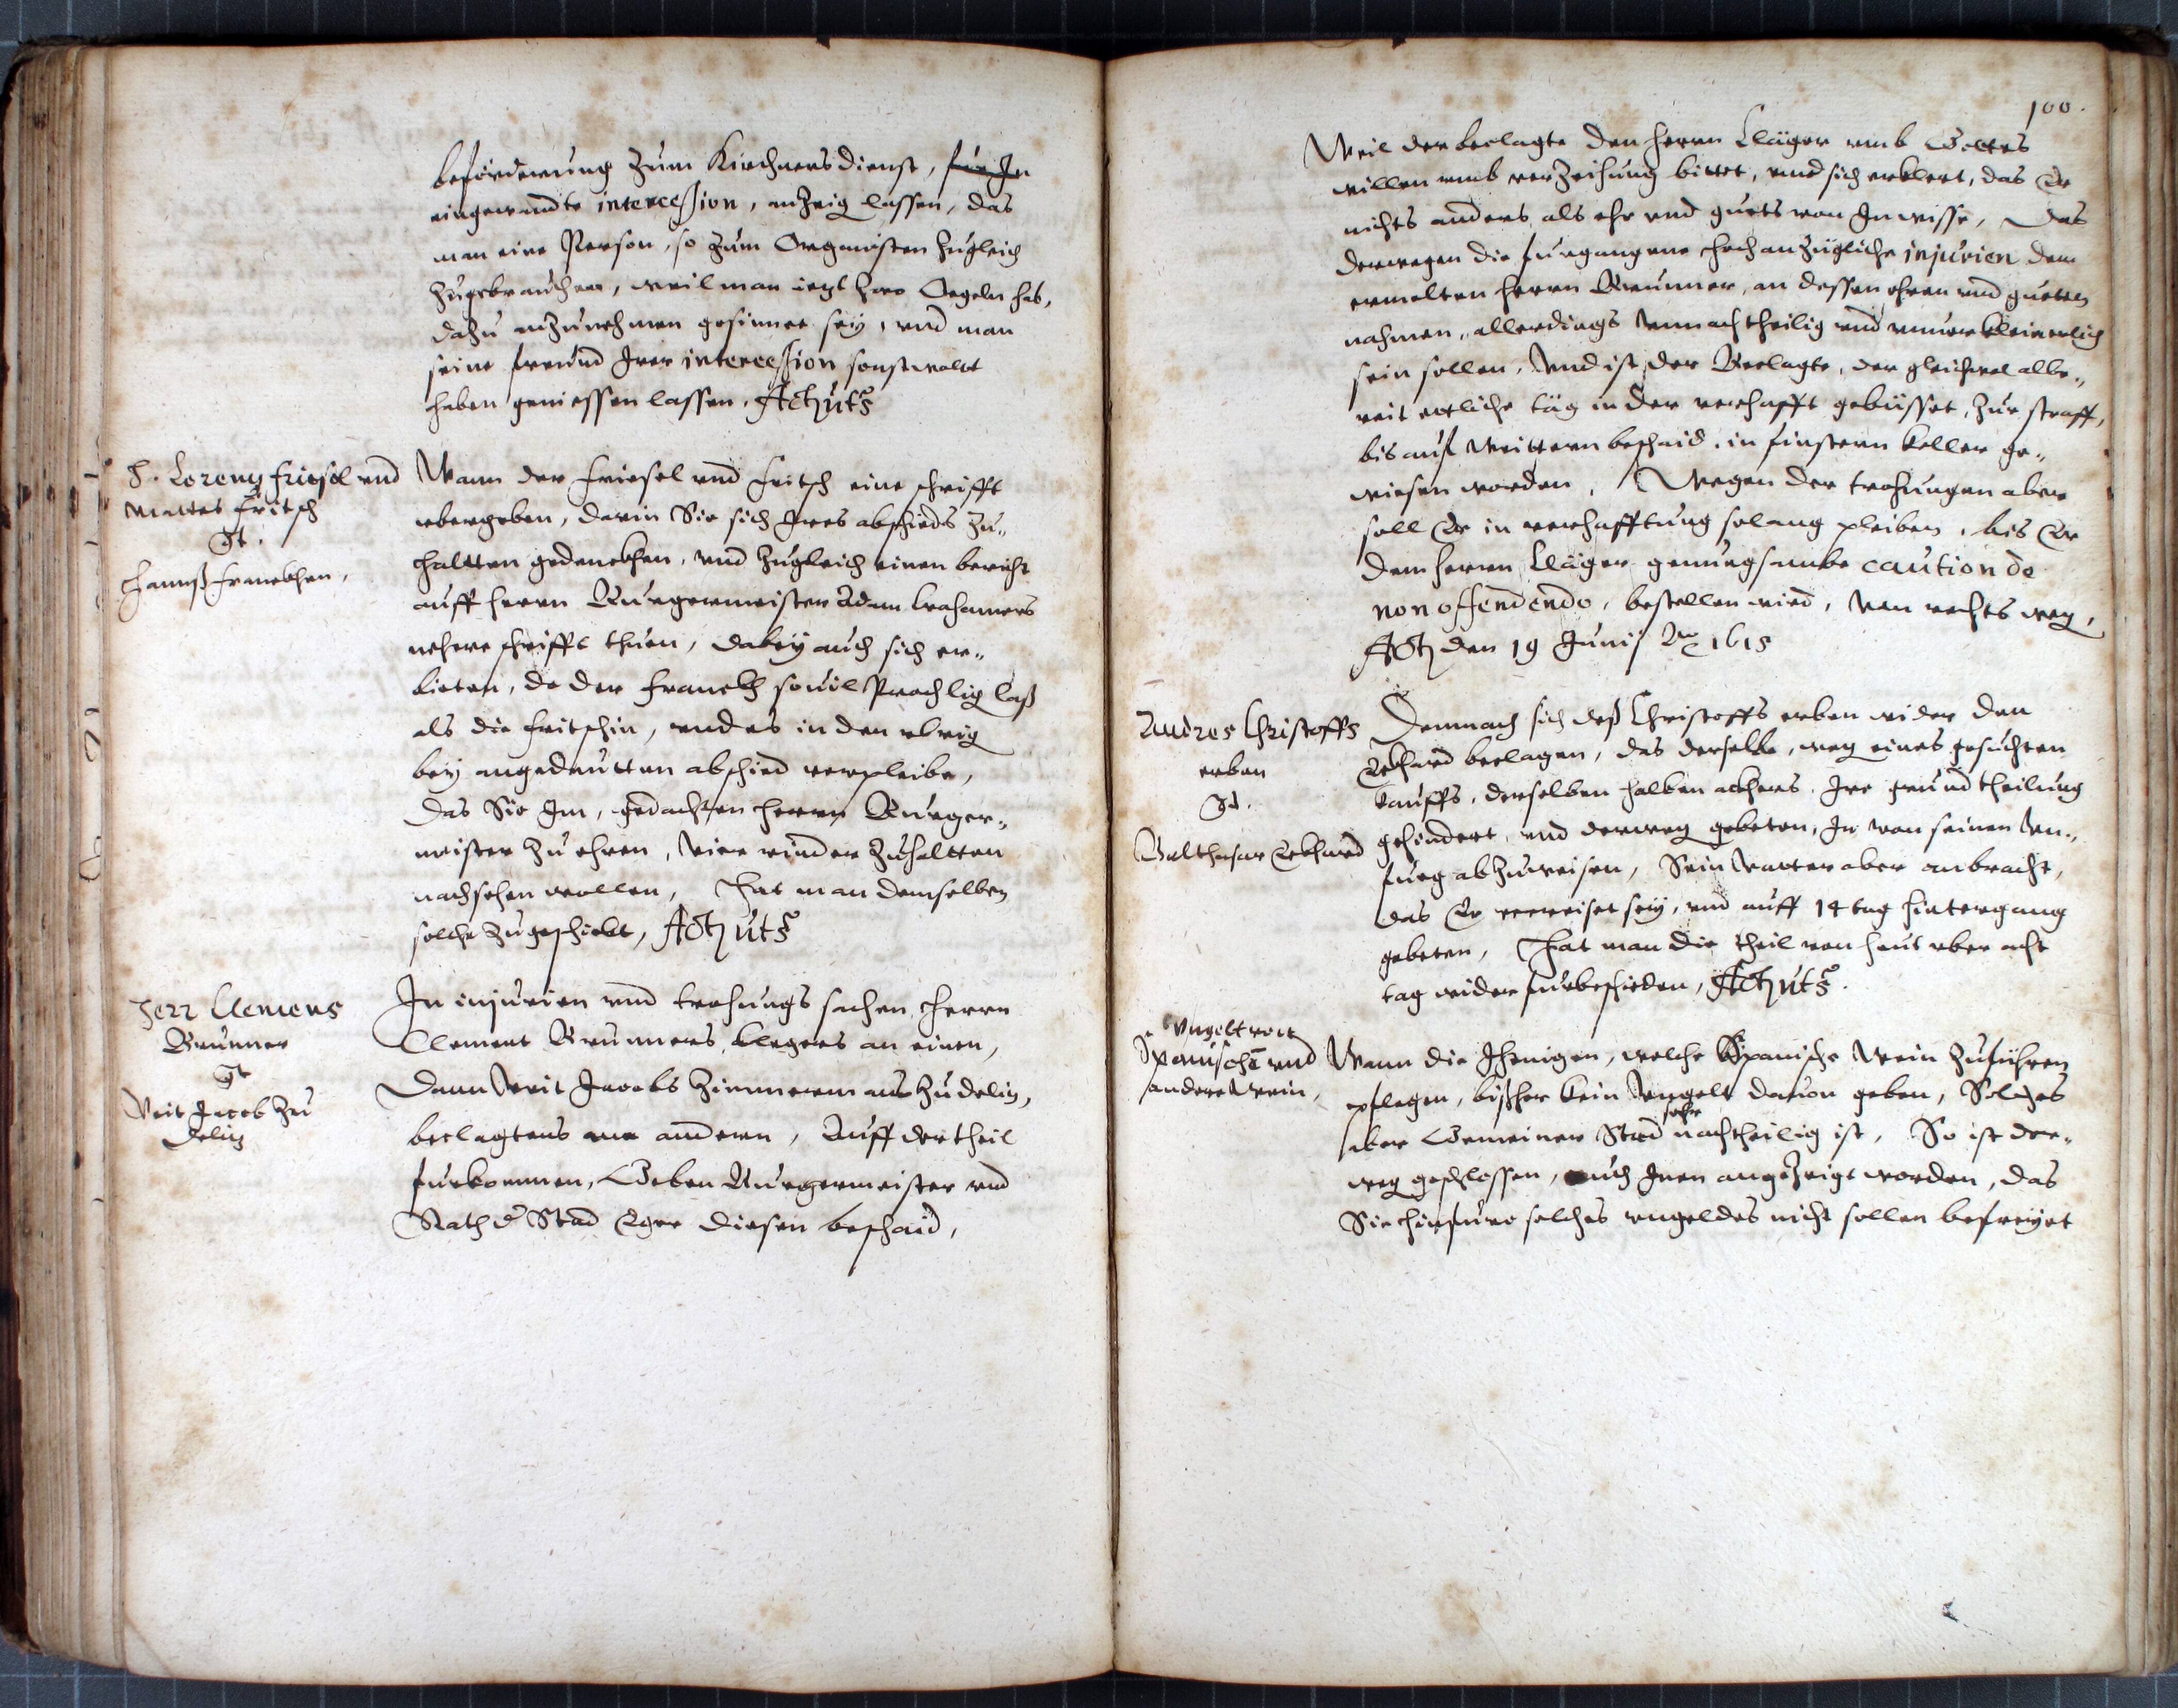 beförderung zum Kirchnersdienst, für In
eingewandte intercession, anzeig lassen, das
man eine Person, so zum Organisten zugleich
zugebrauchen, weil man ietzt zwo Orgeln hab,
dazu anzunehmen gesinnet seÿ, vnd man
seine freund Irer intercession sonst wollt
haben geniessen lassen. Actum uts
H. Lorentz Friesel vnd
Mattes Fritsch
Ct.
Hannß Franckhen,
Wann der Friesel vnd Fritsch eine schrifft
vbergeben, darin Sie sich Ires abschieds zu„
haltten gedenckhen, vnd zugleich einen bericht
auff herrn Burgermeister Adam
nehere schrifft thuen, dabeÿ auch sich er„
bieten, do der Franckh souil
als die Fritschin, vnd es in den vbrig
beÿ angedeutten abschied verpleibe,
das Sie Im, gedachten herrn Burger„
meister zu ehren, vier rinder zuhaltten
nachsehen wollen, Hat man demselben
solche zugeschickt, Actum uts
Herr Clemens
Brunner
Ct
Veit Jacob zu
Delitz
In injurien vnd trohungs sachen, herrn
Clement Brunners, klegers an einen,
Dann Veit Jacobs Zimmerman zu Delitz,
beclagtens am andern, Auff der theil
furkommen, Geben Burgermeister vnd
Rath d Stad Eger diesen beschaid,
100.
Weil der beclagte den herrn Cläger vmb Gottes
willen vmb verzeihung bittet, vnd sich erklert, das Er
nichts anders als ehr vnd guets von Im wisse, Das
derwegen die furgangene hochanzügliche injurien dem
ermelten herrn Brunner, an dessen ehren vnd gueten
nahmen, allerdings vnnachtheilig vnd vnuerkleinerlich
sein sollen, Vnd ist der Beclagte, der gleichwol alle„
reit etliche täg in der verhafft gebüsset, zur straff,
bis auf weittern beschaid, in finstern keller ge„
wiesen worden, Wegen der trohungen aber
soll Er in verhafftung solang pleiben, bis Er
dem herrn Cläger genuegsambe caution de
non offendendo, bestellen wird, Von rechts weg,
Actum den 19 Junij Ao 1615
Andres Christoffs
erben
Ct.
Balthasar Eckhard
Demnach sich deß Christoffs erben wider den
Eckhard beclagen, das derselbe, weg eines gesuchten
Kauffs, derselben halben ackhers, Ire grund theilung
gehindert, vnd derweg gebeten, In von seinen vn„
fueg abzuweisen, Sein Vatter aber anbracht,
das Er verreiset seÿ, vnd auff 14 tag hintergang
gebeten, Hat man die theil von heut vber acht
tag wider furbeschieden, Actum uts.
Vngelt von
Spanischē vnd
andere Wein,
Wann die Jhenigen, welche Spanische Wein zuführen
pflegen, bißher kein Vngelt dauon geben, Solches
aber Gemeiner Stad sehr nachtheilig ist, So ist der„
weg geschlossen, auch Inen angezeigt worden, das
Sie hinfuro solches vngeldes nicht sollen befreÿet